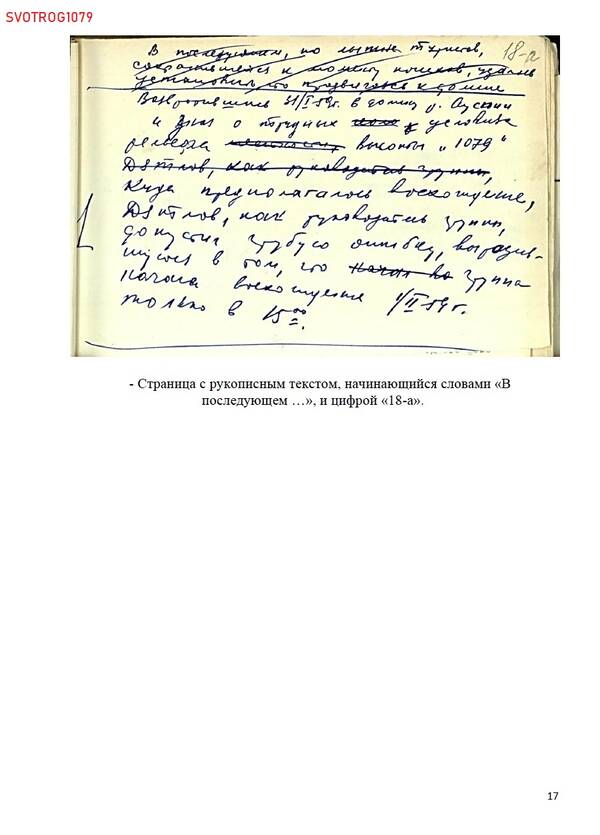 SVOTROG1079
18-а
В последующем, по лыжне туристов,
сохранившейся к моменту поисков, удалось
установить, что продвигаясь к долине
Возвратившись 31/I 59г. в долину р. Ауспии
и зная о трудных условиях
рельефа местности высоты „1079"
Дятлов, как руководитель группы,
куда предполагалось восхождение,
Дятлов, как руководитель группы,
допустил грубую ошибку, выразив-
шуюся в том, что группа
начала восхождение 1/II 59г.
только в 15 00.
- Страница с рукописным текстом, начинающийся словами «В
последующем …», и цифрой «18-а».
17